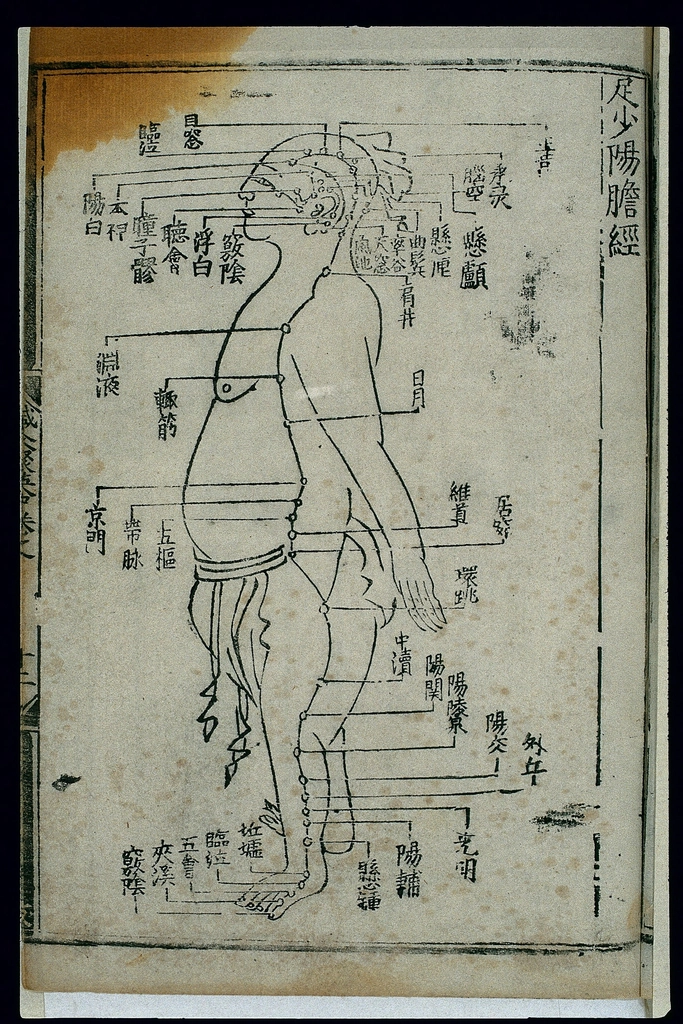 足少陽膽經
目窓
臨泣
承灵
腦空
陽白
本神
瞳子髎
聽會
浮白
竅陰
懸顱
懸厘
曲鬢
率谷
天窓
風池
肩井
淵液
輒筋
日月
京門
帶脉
五樞
維道
居髎
環跳
中瀆
陽関
陽陵泉
陽交
外丘
光明
陽輔
懸鍾
坵墟
臨泣
五會
夾溪
竅陰